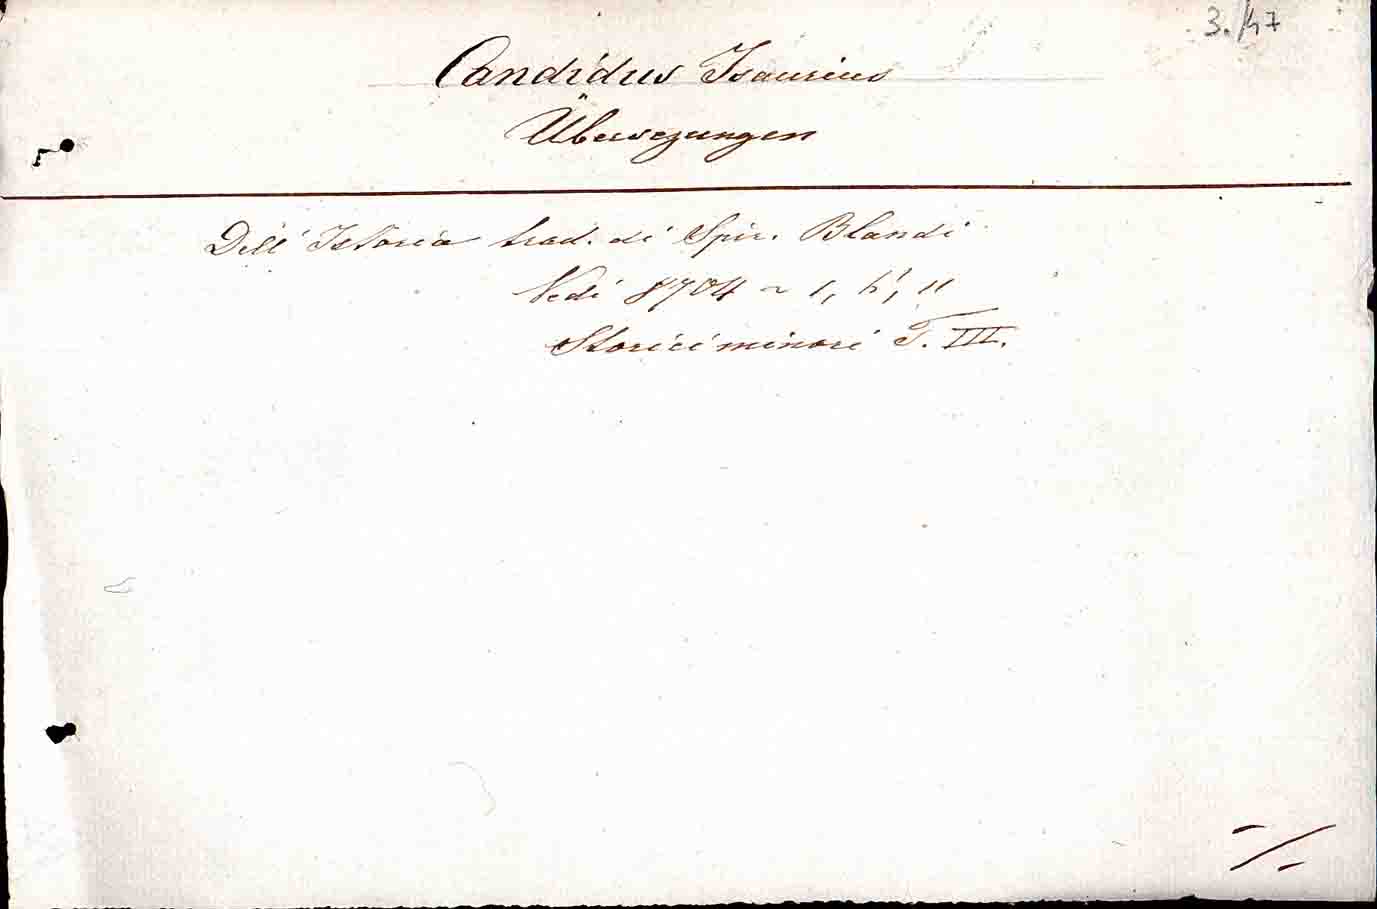 3./47
Candidus Isaurius
Übersezungen
Dell' Istoria trad. di Spir. Blandi
Vedi 8704 ~ 1, h', 11
Storici minori T. III.